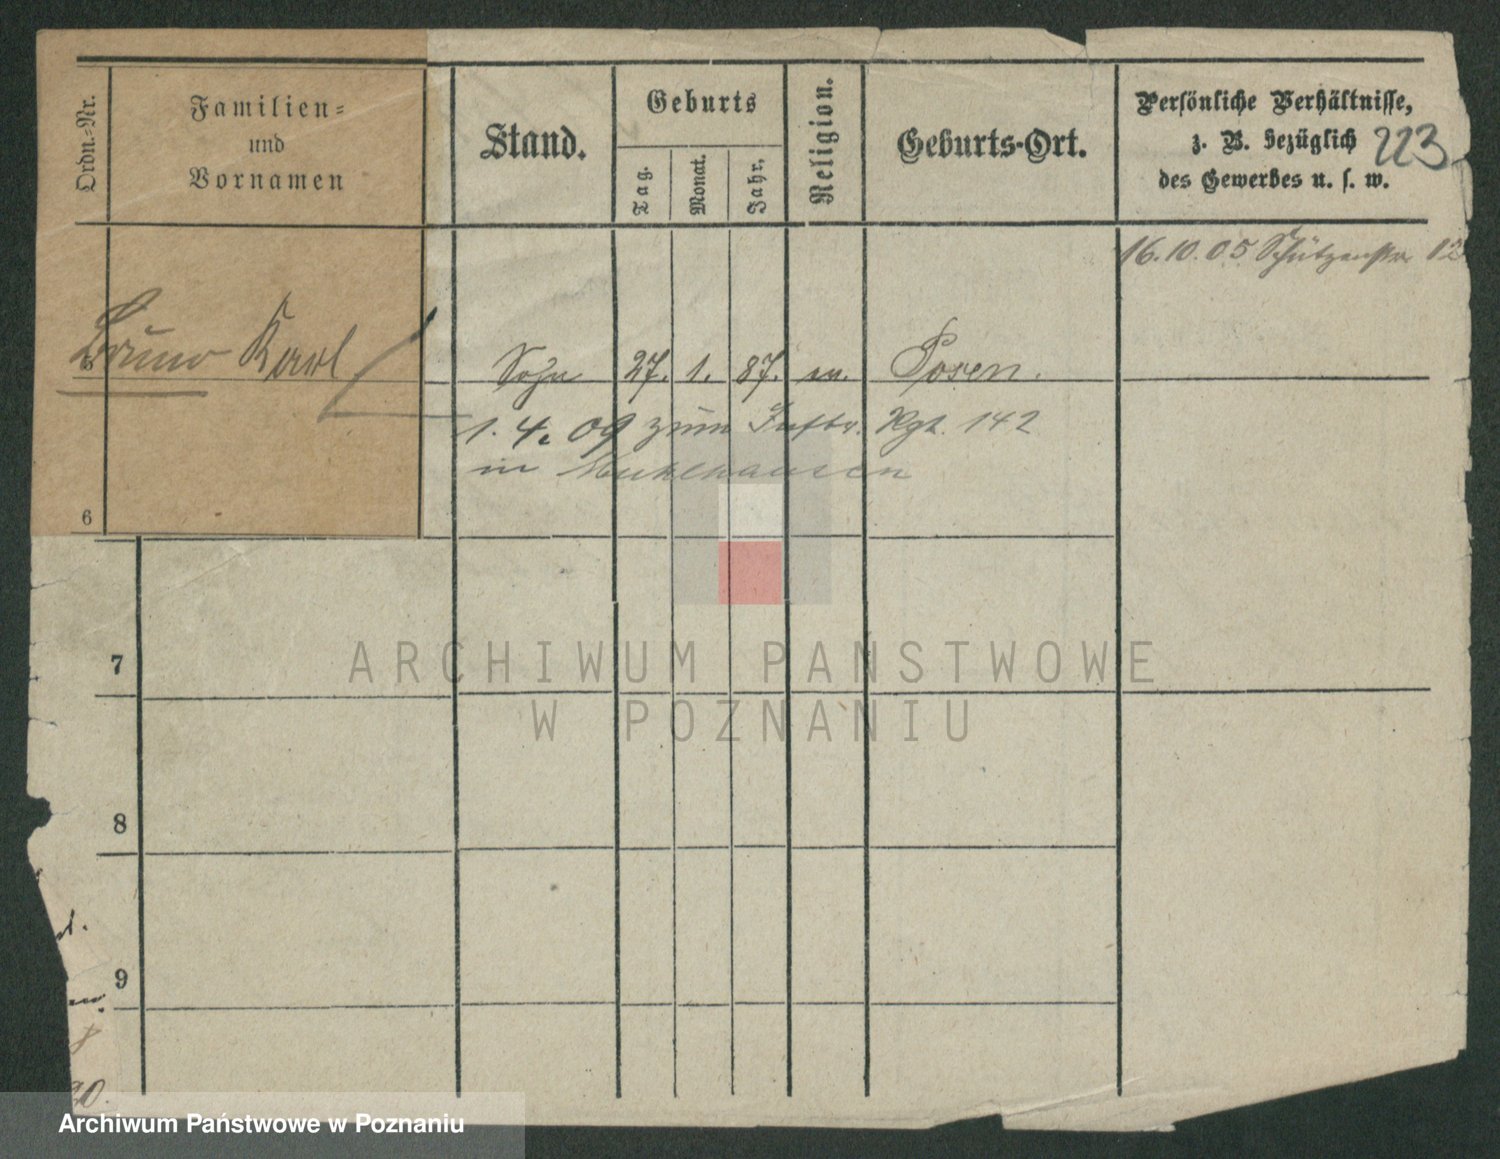 Ordn.-Nr.
Familien-
und
Vornamen
Stand.
Geburts
Tag.
Monat.
Jahr.
Religion.
Geburts-Ort.
Persönliche Verhältnisse,
z. B. bezüglich
des Gewerbes u. s. w.
223
16.10.05 Schützenstr. 12
Bruno Karl
Sohn 27. 1. 87. ev. Posen.
1. 4. 09 zum Inftr. Rgt. 142
in Mühlhausen
6
7
8
9
ARCHIWUM PAŃSTWOWE
W POZNANIU
Archiwum Państwowe w Poznaniu